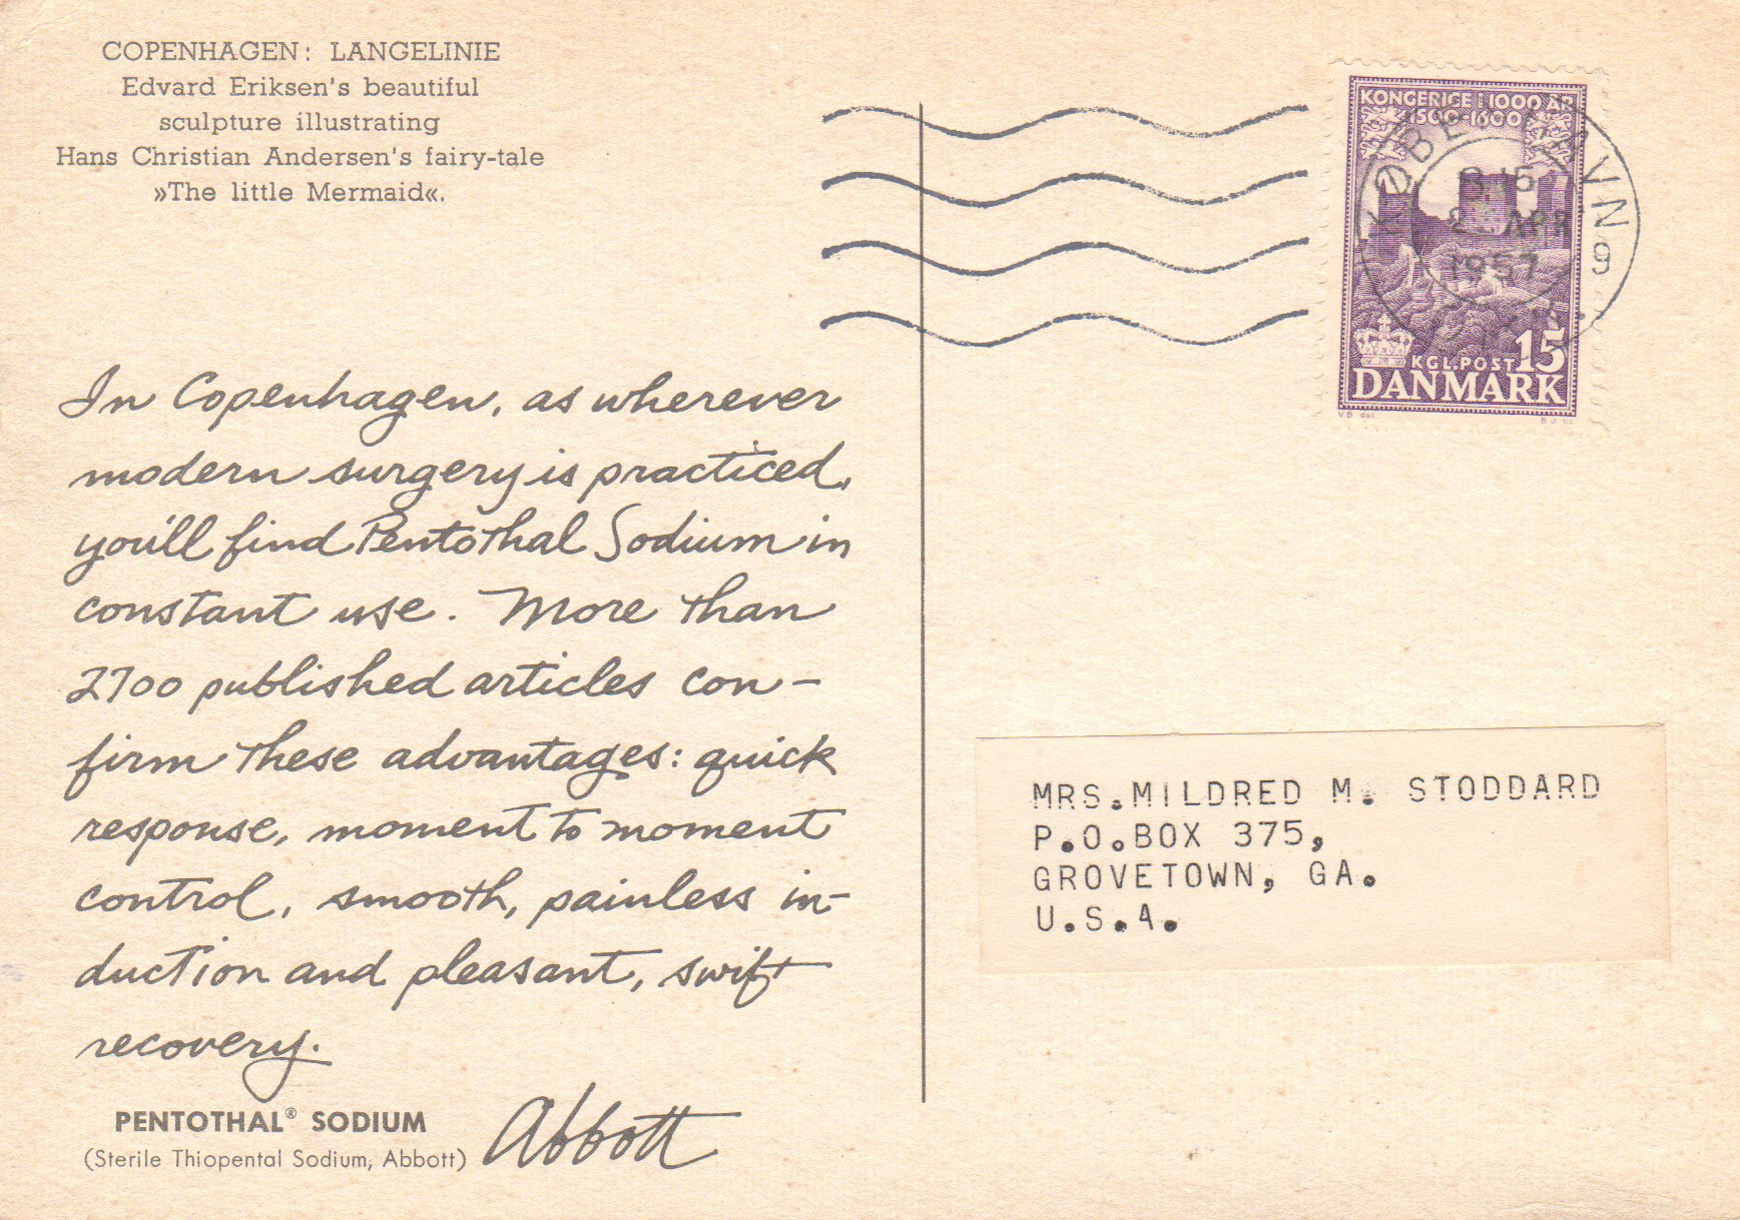 COPENHAGEN: LANGELINIE
Edvard Eriksen's beautiful
sculpture illustrating
Hans Christian Andersen's fairy-tale
»The little Mermaid«.
In Copenhagen, as wherever
modern surgery is practiced,
you'll find Pentothal Sodium in
constant use. More than
2700 published articles con-
firm these advantages: quick
response, moment to moment
control, smooth, painless in-
duction and pleasant, swift
recovery.
PENTOTHAL® SODIUM
(Sterile Thiopental Sodium, Abbott)
Abbott
KONGERIGE I 1000 ÅR
1500-1600
KØBENHAVN
APR
1957
9
KGL.POST 15
DANMARK
MRS.MILDRED M. STODDARD
P.O.BOX 375,
GROVETOWN, GA.
U.S.A.